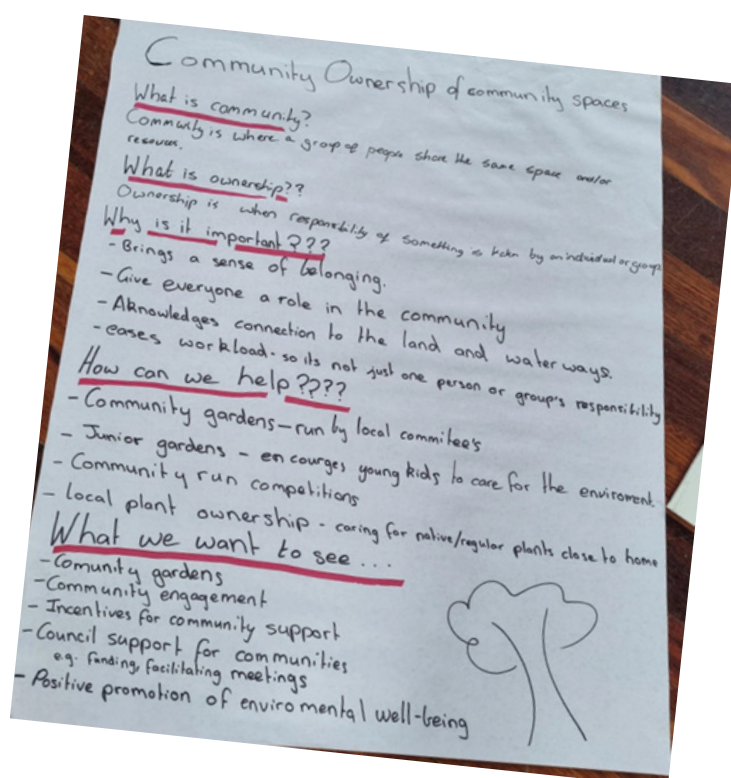 Community Ownership of community spaces
What is community?
Community is where a group of people share the same space and/or
resources.
What is ownership??
Ownership is when responsibility of something is taken by an individual or group
Why is it important???
- Brings a sense of belonging.
- Give everyone a role in the community
- Aknowledges connection to the land and water ways.
- eases workload - so its not just one person or group's responsibility
How can we help????
- Community gardens - run by local commitee's
- Junior gardens - encourges young kids to care for the enviroment.
- Community run competitions
- local plant ownership - caring for native/regular plants close to home
What we want to see...
- Comunity gardens
- Community engagement
- Incentives for community support
- Council support for communities
e.g. funding, facilitating meetings
- Positive promotion of enviromental well-being